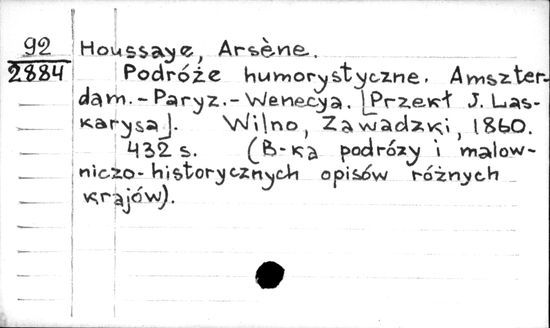 92
2884
Houssaye, Arsène.
Podróże humorystyczne. Amszter-
dam.-Paryz.-Wenecya. [Przekł J. Las-
karysa]. Wilno, Zawadzki, 1860.
432 s. (B-ka podrózy i malow-
niczo-historycznych opisów różnych
krajów).